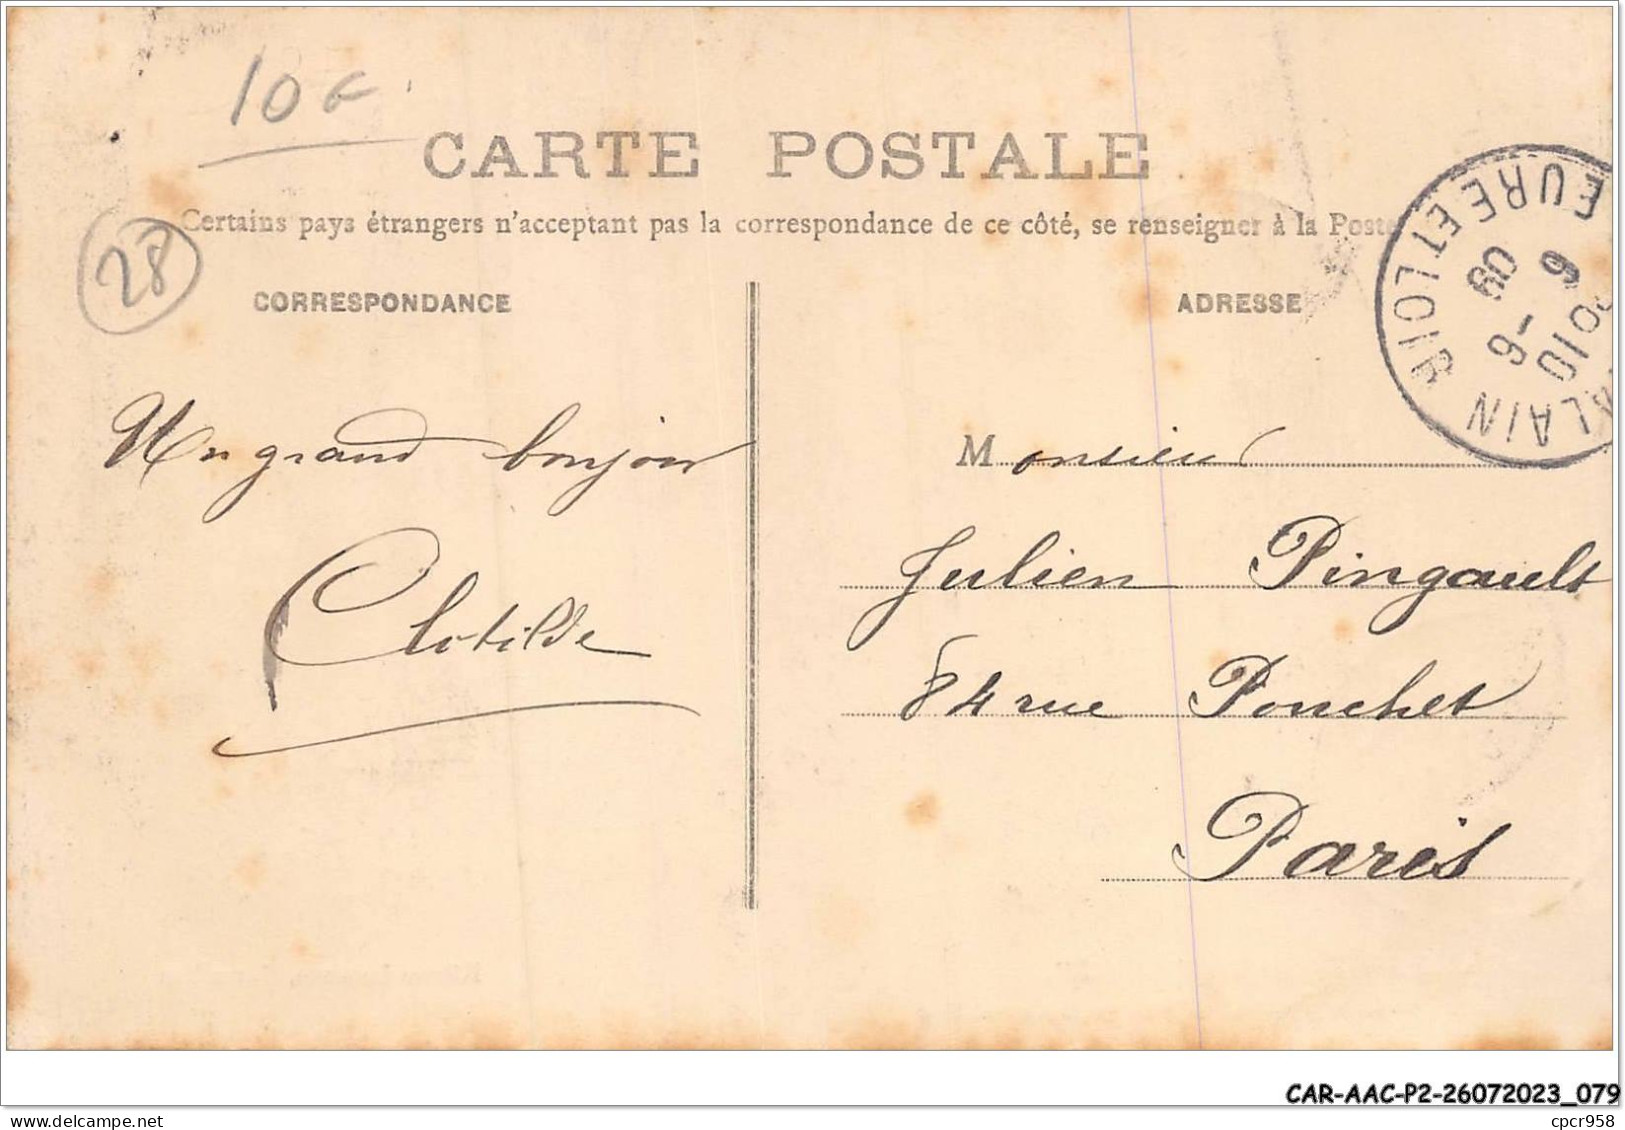 10 F
CARTE POSTALE
Certains pays étrangers n'acceptant pas la correspondance de ce côté, se renseigner à la Poste
28
CORRESPONDANCE
ADRESSE
EURE ET LOIR
6 -6 09
LAIN
Un grand bonjour
Clotilde
Monsieur
Julien Pingault
84 rue Pouchet
Paris
CAR-AAC-P2-26072023_079
www.delcampe.net
cpcr958